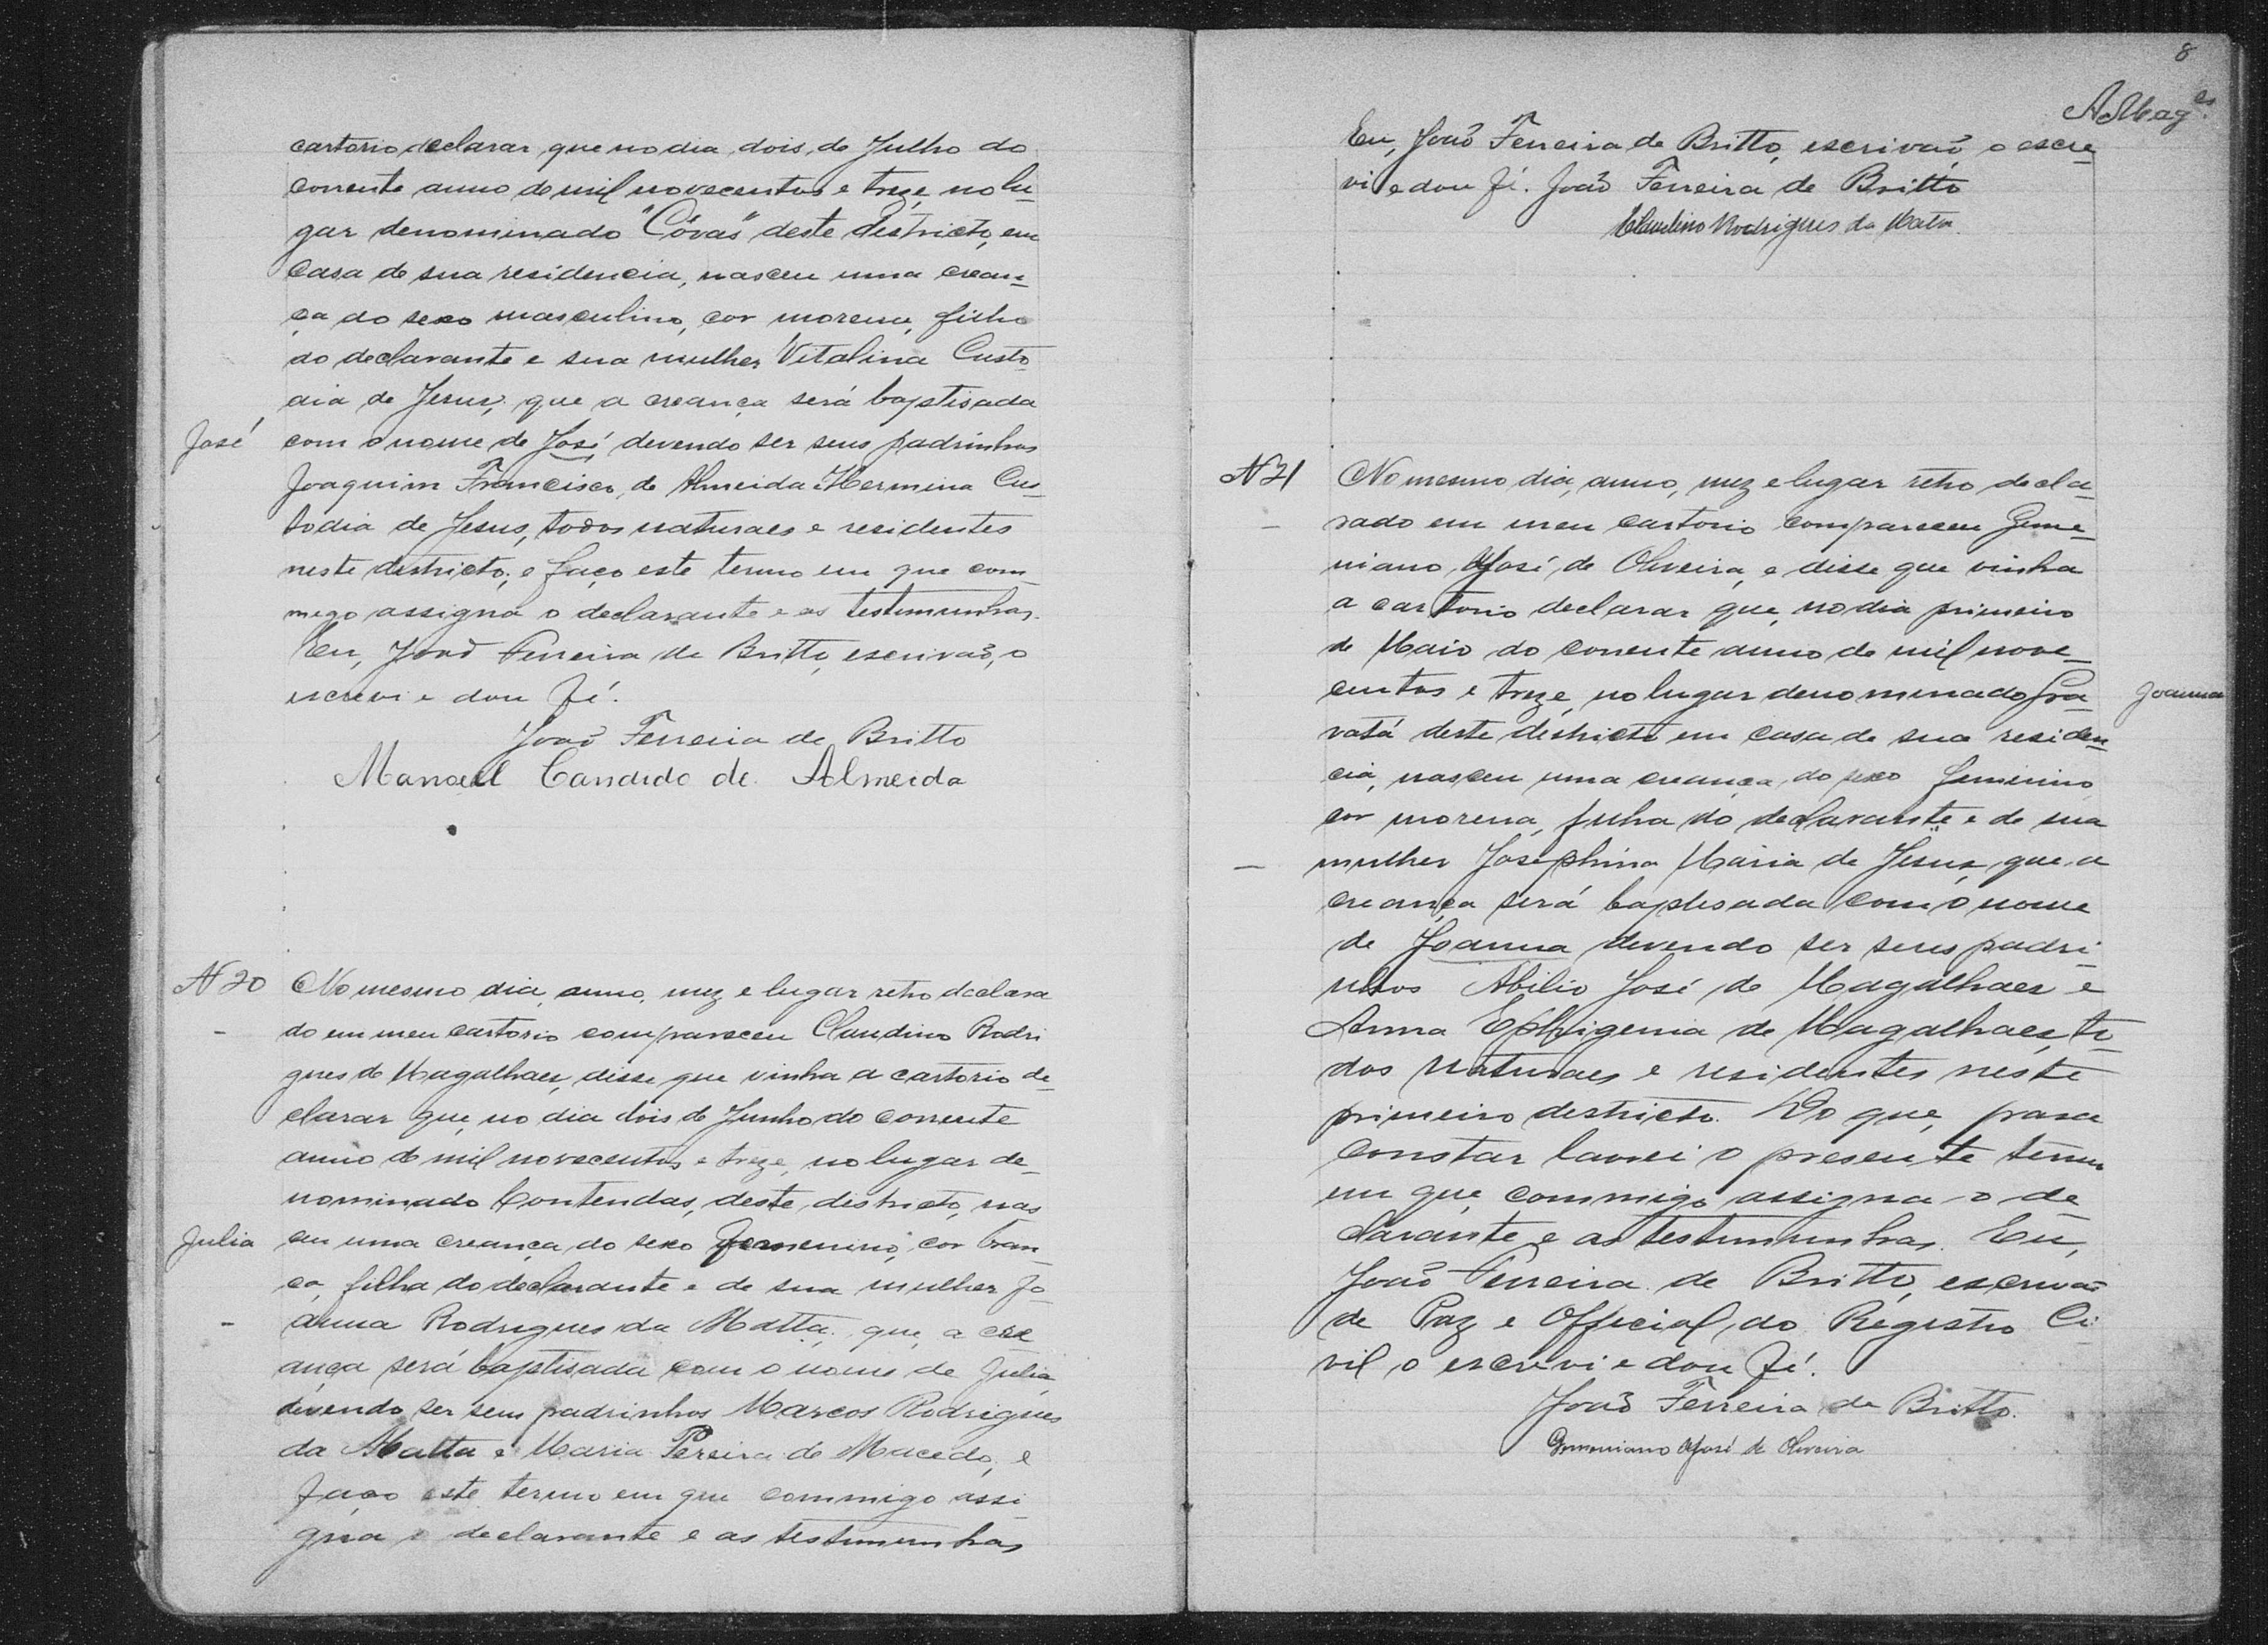 cartorio declarar que no dia dois de Julho do
corrente anno de mil novecentos e treze, no lu-
gar denominado "Côvas" deste districto, em
casa de sua residencia, nasceu uma crean-
ça do sexo masculino, cor morena, filho
do declarante e sua mulher Vitalina Custo
dia de Jesus; que a creança será baptisada
José
com o nome de José, devendo ser seus padrinhos
Joaquim Francisco de Almeida e Hermina Cus-
todia de Jesus, todos naturaes e residentes
neste districto; e faço este termo em que com-
migo assigna o declarante e as testemunhas.
Eu, João Ferreira de Britto, escrivaõ, o
escrevi e dou fé.
João Ferreira de Britto
Manoell Candido de Almeida
N 20
No mesmo dia, anno, mez e lugar retro declara
do em meu cartorio compareceu Claudino Rodri
gues de Magalhaes, disse que vinha a cartorio de-
clarar que, no dia dois de Junho do corrente
anno de mil novecentos e treze, no lugar de-
nominado Contendas, deste districto, nas
Julia
ceu uma creança do sexo femenino, cor bran
ca, filha do declarante e de sua mulher Jo-
anna Rodrigues da Matta; que a cre
ança será baptisada com o nome de Julia,
devendo ser seus padrinhos Marcos Rodrigues
da Matta e Maria Pereira de Macedo, e
faço este termo em que commigo assi
gna o declarante e as testemunhas
8
AMag.es
Eu, João Ferreira de Britto, escrivaõ, o escre-
vi e dou fé. João Ferreira de Britto
Claudino Rodrigues da Mata.
N 21
No mesmo dia, anno, mez e lugar retro decla-
rado em meu cartorio compareceu Geme-
niano José de Oliveira, e disse que vinha
a cartorio declarar que, no dia primeiro
de Maio do corrente anno de mil nove-
centos e treze, no lugar denominado Gra-
Joanna
vatá deste districto em casa de sua residen-
cia, nasceu uma creança do sexo femenino
cor morena, filha do declarante e de sua
mulher Josephina Maria de Jesus, que a
creança será baptisada com o nome
de Joanna devendo ser seus padri-
nhos Abilio José de Magalhaes e
Anna Ephigenia de Magalhaes, to-
dos naturaes e residentes neste
primeiro destricto. Do que, para
constar lavrei o presente termo
em que commigo assigna o de-
clarante e as testemunhas. Eu,
João Ferreira de Britto, escrivaõ
de Paz e Official do Registro Ci
vil o escrevi e dou fé.
João Ferreira de Britto.
Gemeniano José de Oliveira